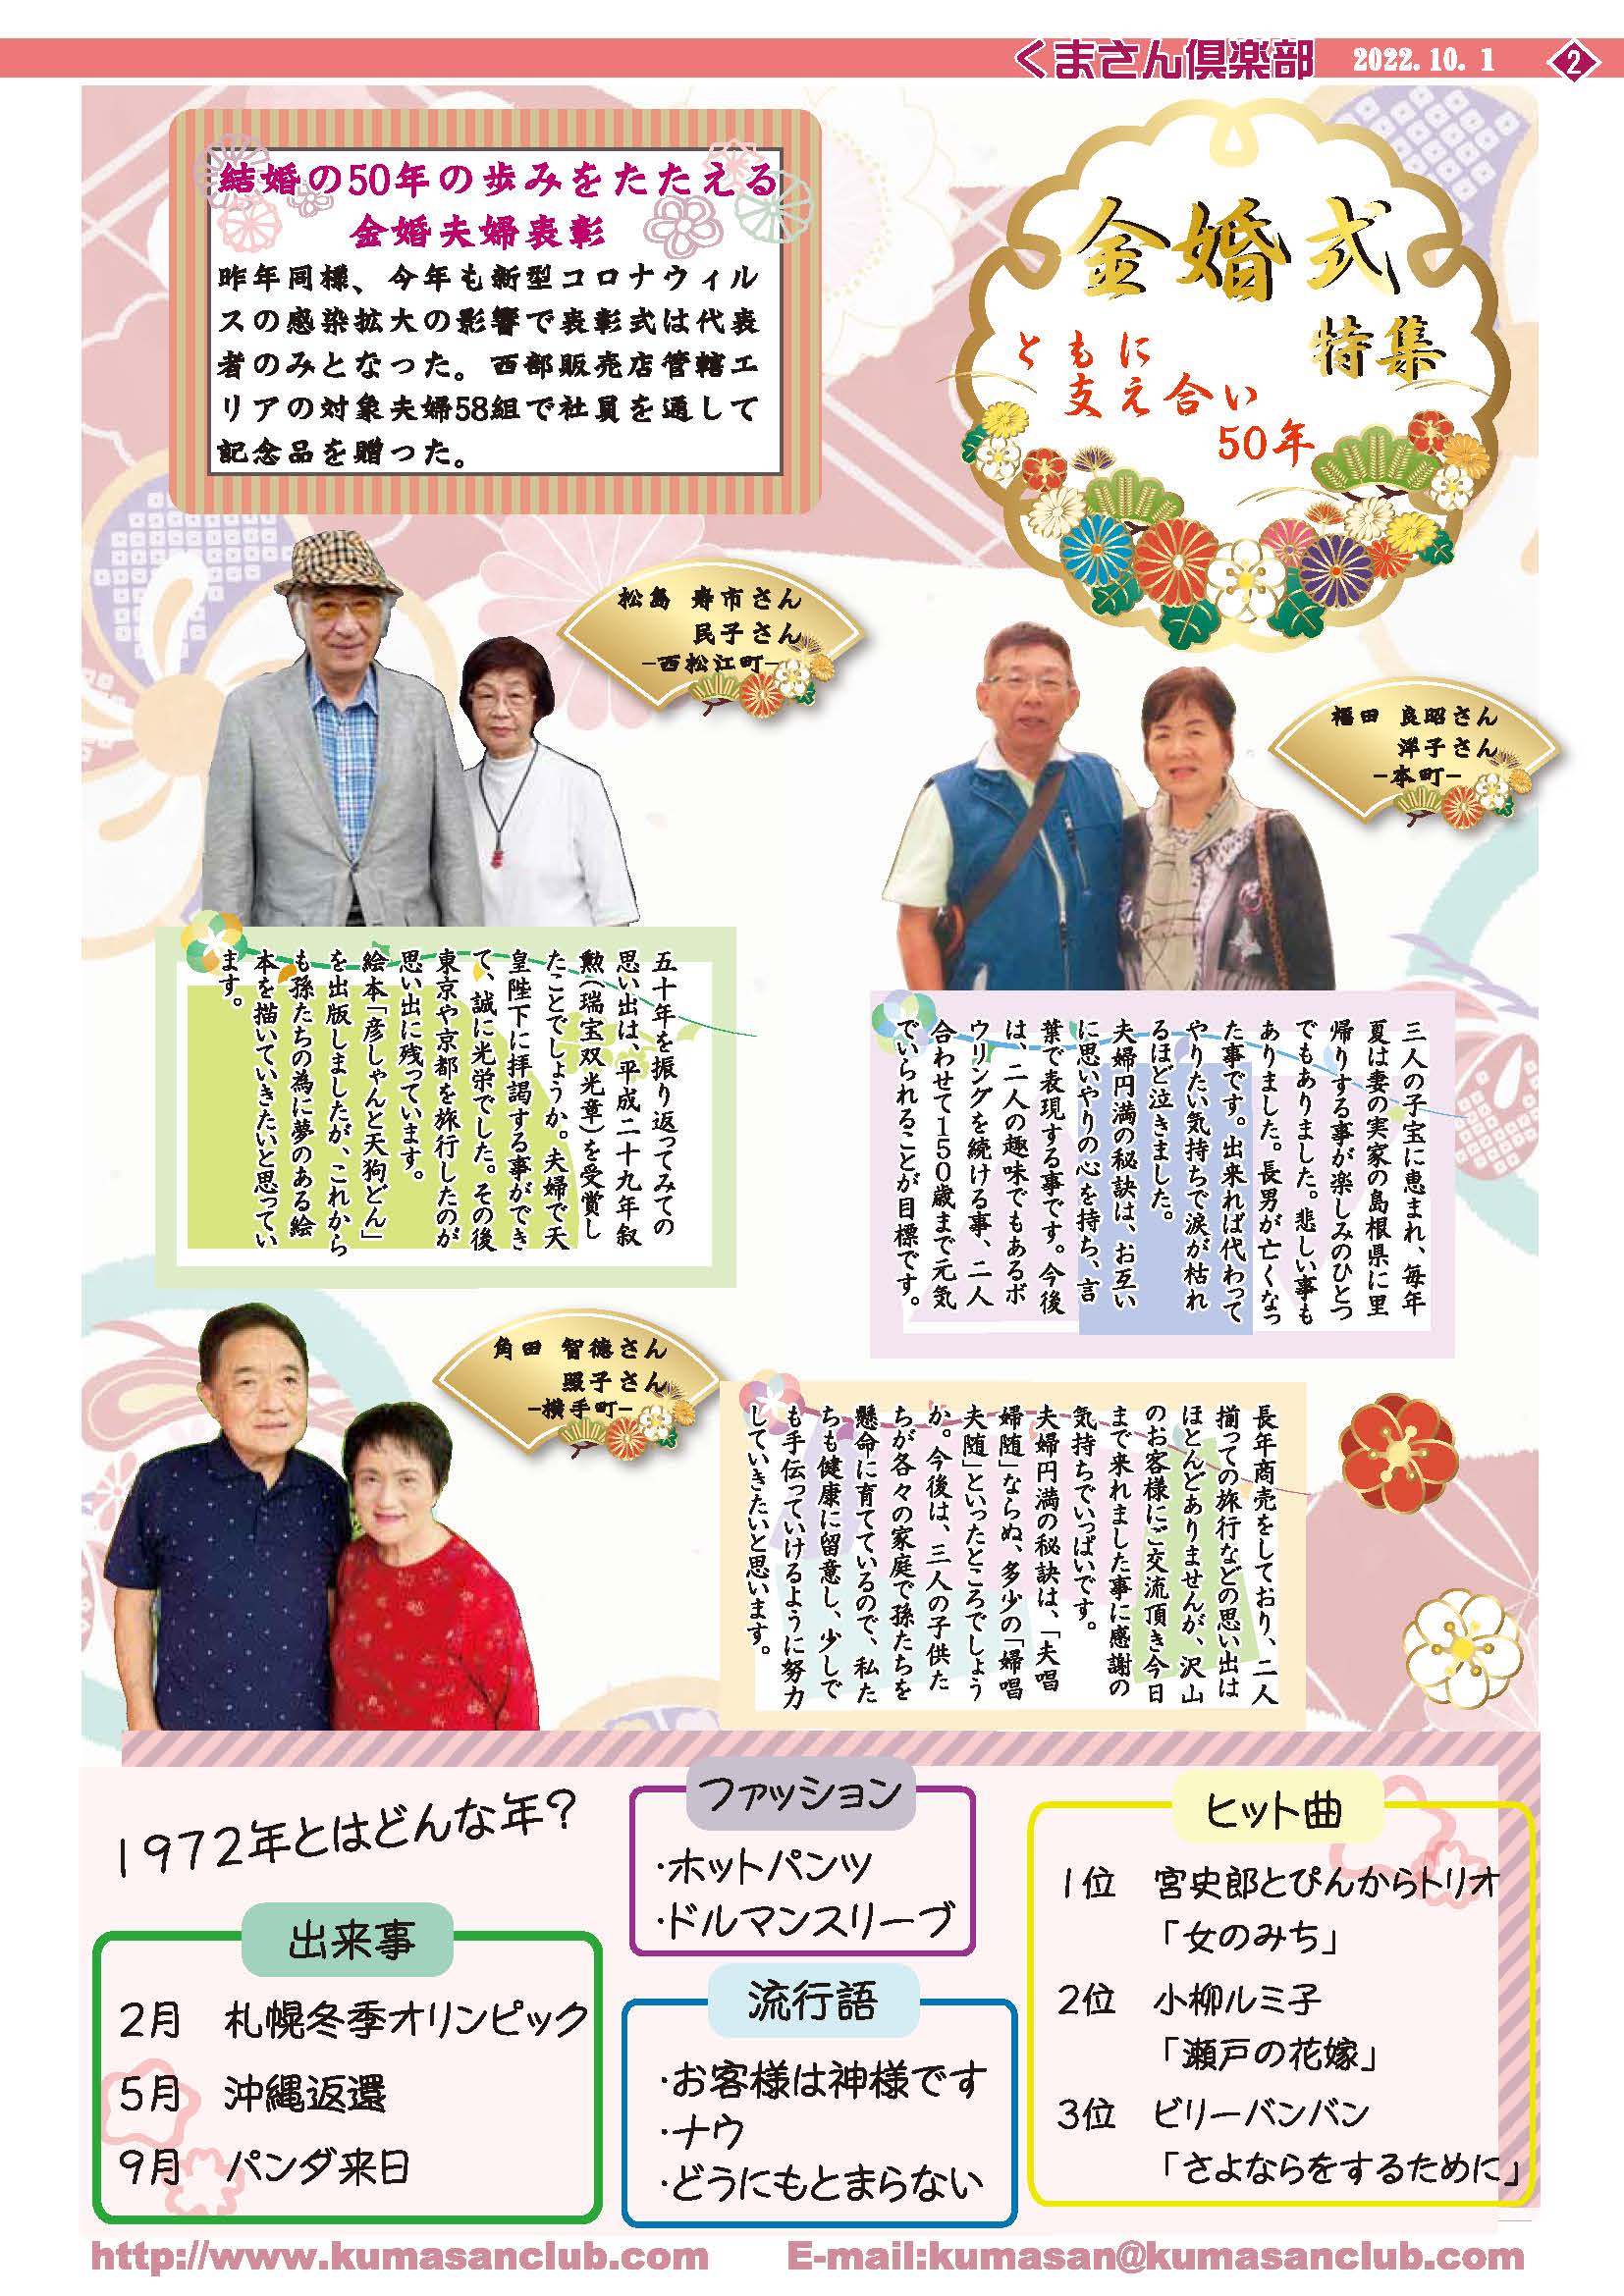 くまさん倶楽部 2022.10. 1 2
金婚式
特集
ともに
支え合い
50年
結婚の50年の歩みをたたえる
金婚夫婦表彰
昨年同様、今年も新型コロナウィル
スの感染拡大の影響で表彰式は代表
者のみとなった。西部販売店管轄エ
リアの対象夫婦58組で社員を通して
記念品を贈った。
福田 良昭さん
洋子さん
-本町-
三人の子宝に恵まれ、毎年
夏は妻の実家の島根県に里
帰りする事が楽しみのひとつ
でもありました。悲しい事も
ありました。長男が亡くなっ
た事です。出来れば代わって
やりたい気持ちで涙が枯れ
るほど泣きました。
夫婦円満の秘訣は、お互い
に思いやりの心を持ち、言
葉で表現する事です。今後
は、二人の趣味でもあるボ
ウリングを続ける事、二人
合わせて150歳まで元気
でいられることが目標です。
松島 寿市さん
民子さん
-西松江町-
五十年を振り返ってみての
思い出は、平成二十九年叙
勲(瑞宝双光章)を受賞し
たことでしょうか。夫婦で天
皇陛下に拝謁する事ができ
て、誠に光栄でした。その後
東京や京都を旅行したのが
思い出に残っています。
絵本「彦しゃんと天狗どん」
を出版しましたが、これから
も孫たちの為に夢のある絵
本を描いていきたいと思ってい
ます。
角田 智徳さん
照子さん
-横手町-
長年商売をしており、二人
揃っての旅行などの思い出は
ほとんどありませんが、沢山
のお客様にご交流頂き今日
まで来れました事に感謝の
気持ちでいっぱいです。
夫婦円満の秘訣は、「夫唱
婦随」ならぬ、多少の「婦唱
夫随」といったところでしょう
か。今後は、三人の子供た
ちが各々の家庭で孫たちを
懸命に育てているので、私た
ちも健康に留意し、少しで
も手伝っていけるように努力
していきたいと思います。
1972年とはどんな年?
出来事
2月 札幌冬季オリンピック
5月 沖縄返還
9月 パンダ来日
ファッション
・ホットパンツ
・ドルマンスリーブ
流行語
・お客様は神様です
・ナウ
・どうにもとまらない
ヒット曲
1位 宮史郎とぴんからトリオ
「女のみち」
2位 小柳ルミ子
「瀬戸の花嫁」
3位 ビリーバンバン
「さよならをするために」
http://www.kumasanclub.com E-mail:kumasan@kumasanclub.com